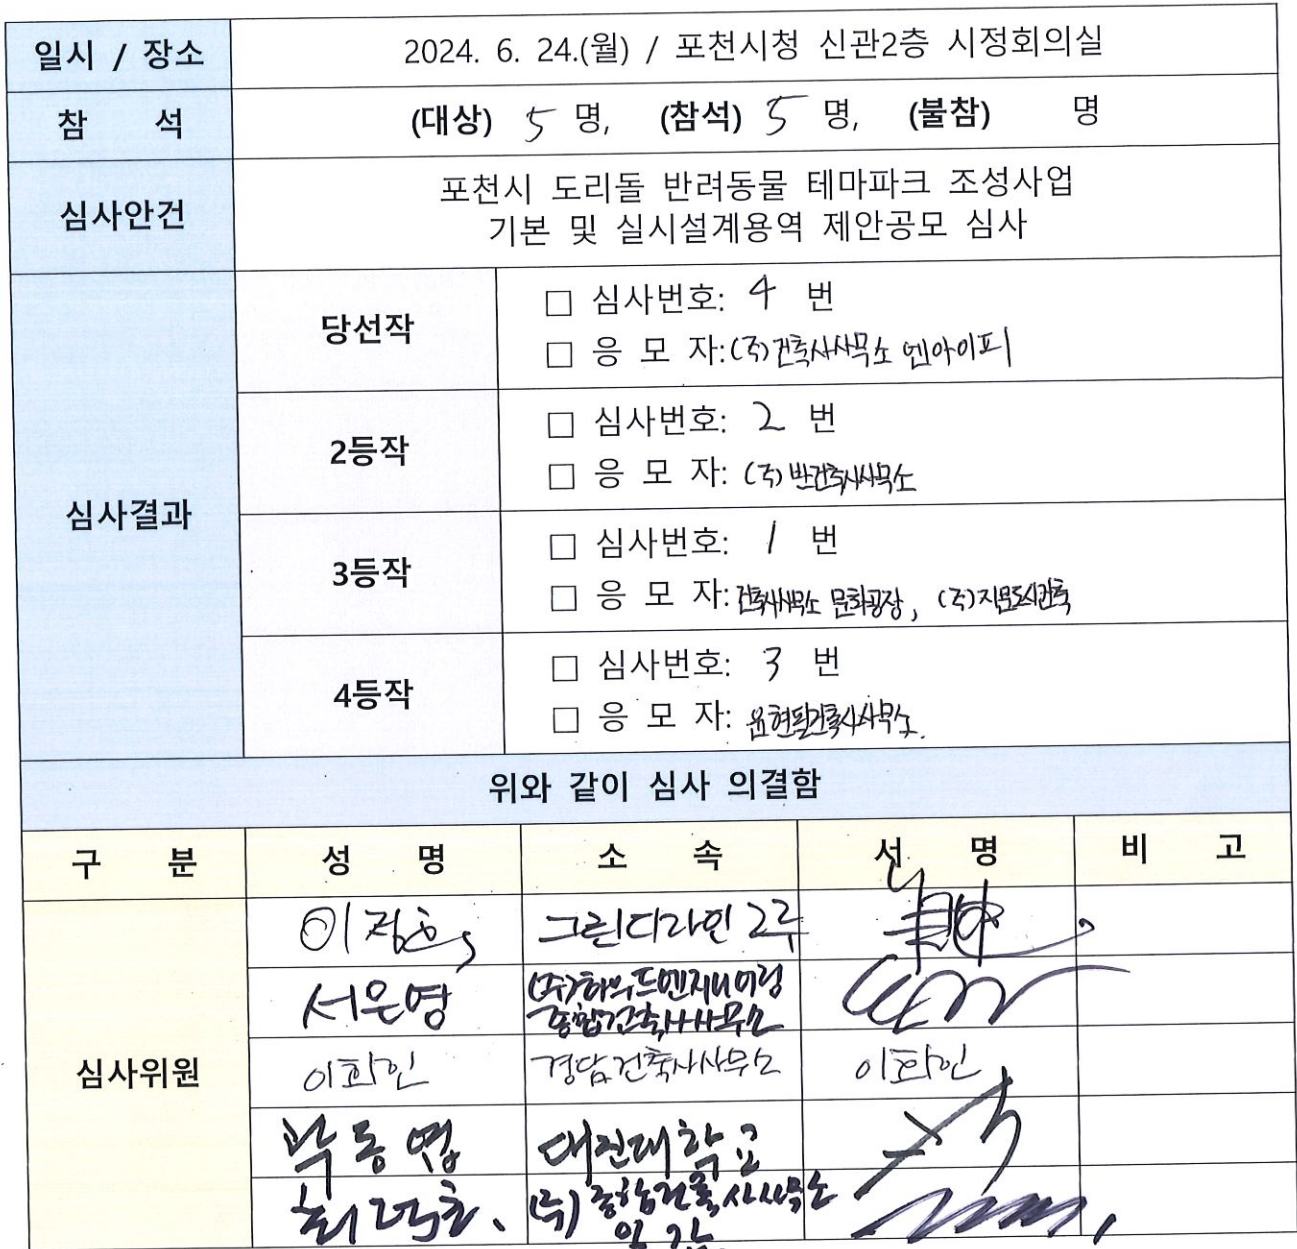 일시 / 장소 2024. 6. 24.(월) / 포천시청 신관2층 시정회의실
참 석 (대상) 5 명, (참석) 5 명, (불참) 명
심사안건 포천시 도리돌 반려동물 테마파크 조성사업
기본 및 실시설계용역 제안공모 심사
심사결과
당선작
□ 심사번호: 4 번
□ 응 모 자: (주)건축사사무소 엔아이피
2등작
□ 심사번호: 2 번
□ 응 모 자: (주)반건축사사무소
3등작
□ 심사번호: 1 번
□ 응 모 자: 건축사사무소 문화공장, (주)지문도시건축
4등작
□ 심사번호: 3 번
□ 응 모 자: 윤현필건축사사무소.
위와 같이 심사 의결함
구 분 성 명 소 속 서 명 비 고
심사위원
그린디자인 그루
서은영 (주)하우드엔지니어링
종합건축사사무소
이화인 경담건축사사무소 이화인
곽동엽 대진대학교
(주)종합건축사사무소